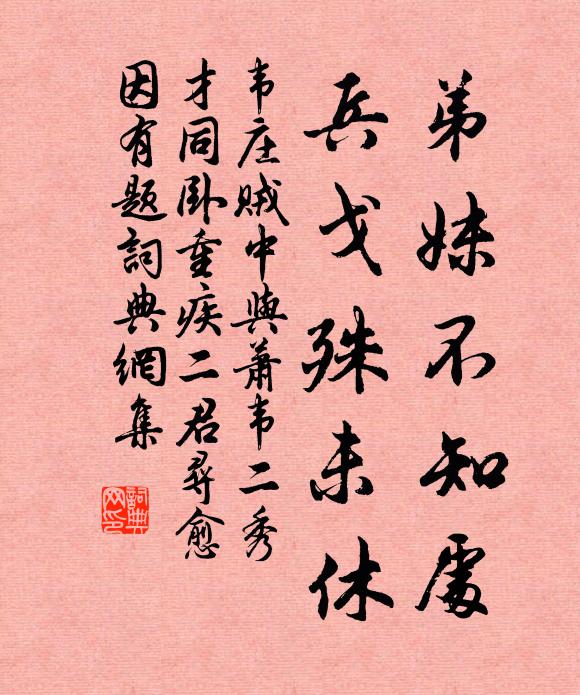 弟妹不知處
兵戈殊未休
韦庄贼中與蕭韦二秀
才同卧重疾二君尋愈
因有题詞典網集
詞典网印